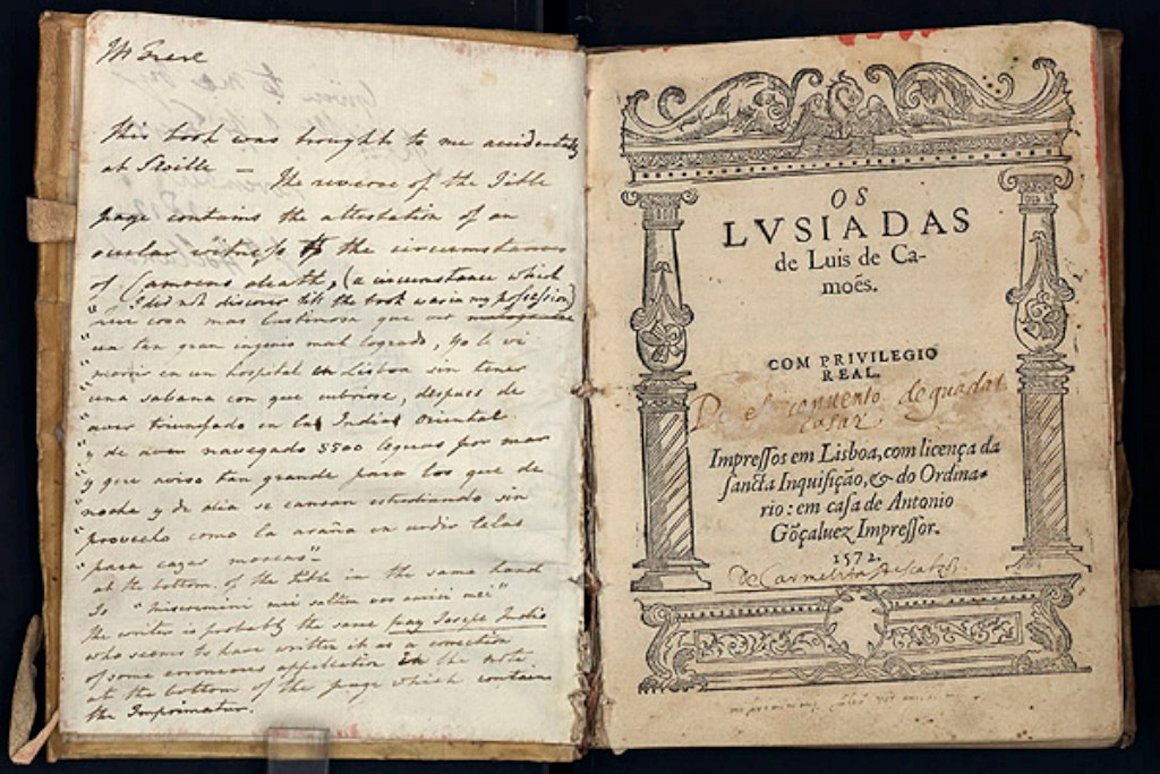 Mr Frere
this book was brought to me accidentally
at Seville — The reverse of the Title
page contains the attestation of an
ocular witness to the circumstances
of Camoens death, (a circumstance which
I did not discover till the book was in my possession)
cosa mas lastimosa que
un tan gran ingenio mal logrado, yo le vi
morir en un hospital en Lisboa sin tener
una sabana con que cubrirse, despues de
aver triunfado en la India Oriental
y de aver navegado 5500 leguas por mar
y que aviso tan grande para los que de
noche y de dia se cansan estudiando sin
provecho como la araña en urdir telas
para cazar moscas"
at the bottom of the title in the same hand
Is "miseremini mei saltem vos amici mei"
the writer is probably the same fray Josepe Indio
who seems to have written it as a correction
of some erroneous application in the note
at the bottom of the page which contains
the Imprimatur.
OS
LVSIADAS
de Luis de Ca-
moẽs.
COM PRIVILEGIO
REAL.
De el conuento de guadal
cazar
Impressos em Lisboa, com licença da
sancta Inquisição, & do Ordina-
rio: em casa de Antonio
Gõçaluez Impressor.
1572.
de Carmelitas Descalzos.